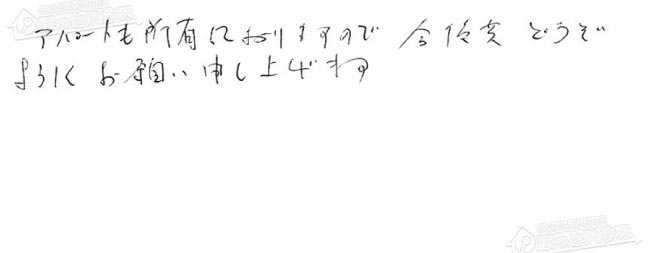 アパートも所有しておりますので 今後共 どうぞ
よろしく お願い申し上げます